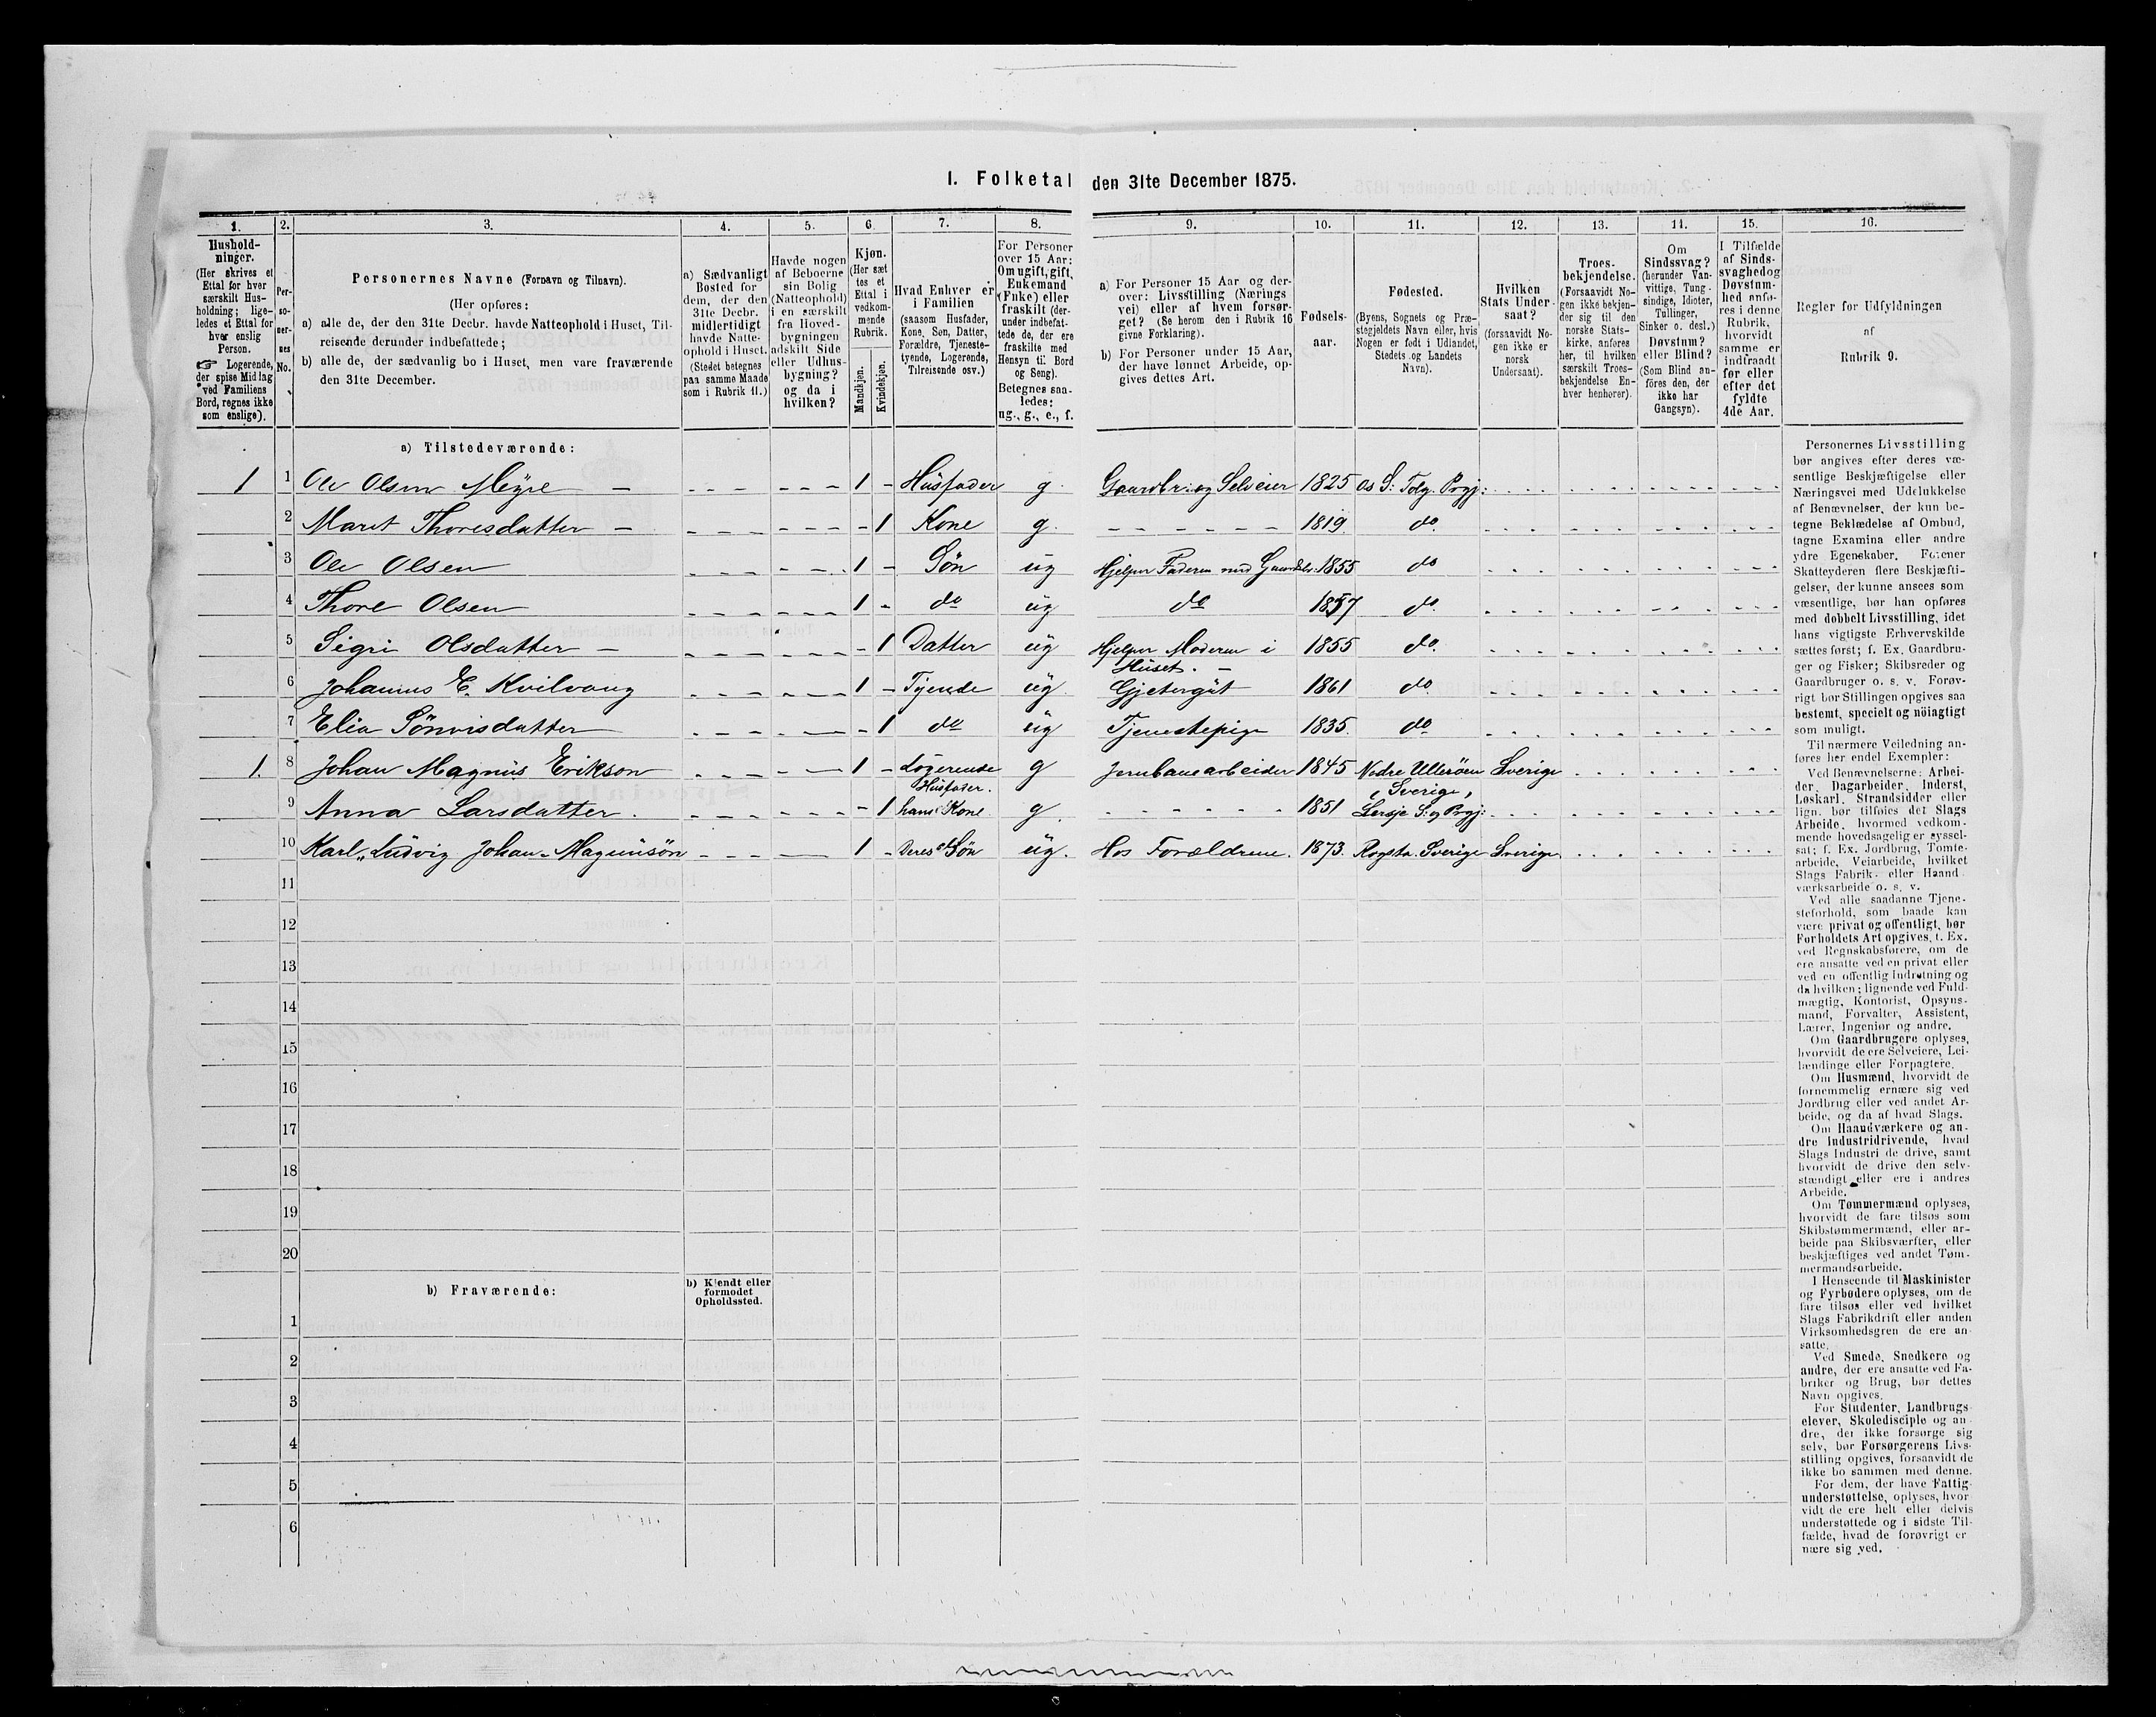 I. Folketal den 31te December 1875.
1.
Hushold-
ninger.
(Her skrives et
Ettal for hver
særskilt Hus-
holdning; lige-
ledes et Ettal for
hver enslig
Person.
☞ Logerende,
der spise Middag
ved Familiens
Bord, regnes ikke
som enslige).
2.
Per-
so-
ner-
nes
No.
3.
Personernes Navne (Fornavn og Tilnavn).
(Her opføres:
a) alle de, der den 31te Decbr. havde Natteophold i Huset, Til-
reisende derunder indbefattede;
b) alle de, der sædvanlig bo i Huset, men vare fraværende
den 31te December.
4.
a) Sædvanligt
Bosted for
dem, der den
31te Decbr.
midlertidigt
havde Natte-
ophold i Huset.
(Stedet betegnes
paa samme Maade
som i Rubrik 11.)
5.
Havde nogen
af Beboerne
sin Bolig
(Natteophold)
i en særskilt
fra Hoved-
bygningen
adskilt Side
eller Udhus-
bygning?
og da i
hvilken?
6
Kjøn.
(Her sæt
tes et
Ettal i
vedkom-
mende
Rubrik.
Mandkjøn.
Kvindekjøn.
7.
Hvad Enhver er
i Familien
(saasom Husfader,
Kone, Søn, Datter,
Forældre, Tjeneste-
tyende, Logerende,
Tilreisende osv.)
8.
For Personer
over 15 Aar:
Om ugift, gift,
Enkemand
(Enke) eller
fraskilt (der-
under indbefat-
tede de, der ere
fraskilte med
Hensyn til Bord
og Seng).
Betegnes saa-
ledes:
ug., g., e., f.
9.
a) For Personer 15 Aar og der-
over: Livsstilling (Nærings
vei) eller af hvem forsør-
get? (Se herom den i Rubrik 16
givne Forklaring).
b) For Personer under 15 Aar,
der have lønnet Arbeide, op-
gives dettes Art.
10.
Fødsels-
aar.
11.
Fødested.
(Byens, Sognets og Præ-
stegjeldets Navn eller, hvis
Nogen er født i Udlandet,
Stedets og Landets
Navn).
12.
Hvilken
Stats Under-
saat?
(forsaavidt No-
gen ikke er
norsk
Undersaat).
13.
Troes-
bekjendelse.
(Forsaavidt No-
gen ikke bekjen-
der sig til den
norske Stats-
kirke, anføres
her, til hvilken
særskilt Troes-
bekjendelse En-
hver henhører).
11.
Om
Sindssvag?
(herunder Van-
vittige, Tung-
sindige, Idioter,
Tullinger,
Sinker o. desl.)
Døvstum?
eller Blind?
(Som Blind an-
føres den, der
ikke har
Gangsyn).
15.
I Tilfælde
af Sinds-
svaghed og
Døvstum-
hed anfø-
res i denne
Rubrik,
hvorvidt
samme er
indtraadt
før eller
efter det
fyldte
4de Aar.
16.
Regler for Udfyldningen
af
Rubrik 9.
a) Tilstedeværende:
1 1 Ole Olsen Meyre – 1 – Husfader g. Gaardbr: og Selveier 1825 Os S: Tolg. Prgj:
2 Maret Thoresdatter – – 1 Kone g. 1819. do.
3 Ole Olsen 1 – Søn ug Hjelper Faderen med 1855 do
4 Thore Olsen 1 – do ug do 1857 do.
5 Sigri Olsdatter – – 1 Datter ug Hjelper Moderen i 1855 do.
Huset. –
6 Johannes E. Kvilvang 1 – Tyende ug. Gjetergut 1861 do.
7 Elia Sønvisdatter – 1 do ug Tjenestepige 1835. do
1. 8 Johan Magnus Erikson 1 – Logerende g Jernbanearbeider 1845 Nedre Ullerøen Sverige
Husfader. Sverige,
9 Anna Larsdatter. – 1 hans Kone g. 1851 S: og Prgj:
10 Karl Ludvig Johan Magnusøn 1 – Deres Søn ug. Hos Forældrene. 1873. Rogsta. Sverige Sverige.
11
12
13
14
15
16
17
18
19
20
b) Fraværende:
b) Kjendt eller
formodet
Opholdssted.
1
2
3
4
5
6
Personernes Livsstilling
bør angives efter deres væ-
sentlige Beskjæftigelse eller
Næringsvei med Udelukkelse
af Benævnelser, der kun be-
tegne Beklædelse af Ombud,
tagne Examina eller andre
ydre Egenskaber. Forener
Skatteyderen flere Beskjæfti-
gelser, der kunne ansees som
væsentlige, bør han opføres
med dobbelt Livsstilling, idet
hans vigtigste Erhvervskilde
sættes først; f. Ex. Gaardbru-
ger og Fisker; Skibsreder og
Gaardbruger o. s. v. Forøv-
rigt bør Stillingen opgives saa
bestemt, specielt og nöiagtigt
som muligt.
Til nærmere Veiledning an-
føres her endel Exempler:
Ved Benævnelserne: Arbei-
der, Dagarbeider, Inderst,
Løskarl, Strandsidder eller
lign. bør tilføies det Slags
Arbeide, hvormed vedkom-
mende hovedsagelig er syssel-
sat; f. Ex. Jordbrug, Tomte-
arbeide, Veiarbeide, hvilket
Slags Fabrik- eller Haand
værksarbeide o. s. v.
Ved alle saadanne Tjene-
steforhold, som baade kan
være privat og offentligt, bør
Forholdets Art opgives, f. Ex.
ved Regnskabsførere, om de
ere ansatte ved en privat eller
ved en offentlig Indretning og
da hvilken; lignende ved Fuld-
mægtig, Kontorist, Opsyns-
mand, Forvalter, Assistent,
Lærer, Ingeniør og andre.
Om Gaardbrugere oplyses,
hvorvidt de ere Selveiere, Lei-
lændinge eller Forpagtere.
Om Husmænd, hvorvidt de
fornemmelig ernære sig ved
Jordbrug eller ved andet Ar-
beide, og da af hvad Slags.
Om Haandværkere og an-
dre Industridrivende, hvad
Slags Industri de drive, samt
hvorvidt de drive den selv-
stændigt eller ere i andres
Arbeide.
Om Tømmermænd oplyses,
hvorvidt de fare tilsøs som
Skibstømmermænd, eller ar-
beide paa Skibsværfter, eller
beskjæftiges ved andet Tøm-
mermandsarbeide.
I Henseende til Maskinister
og Fyrbødere oplyses, om de
fare tilsøs eller ved hvilket
Slags Fabrikdrift eller anden
Virksomhedsgren de ere an-
satte.
Ved Smede, Snedkere og
andre, der ere ansatte ved Fa-
briker og Brug, bør dettes
Navn opgives.
For Studenter, Landbrugs-
elever, Skoledisciple og an
dre, der ikke forsørge sig
selv, bør Forsørgerens Livs-
stilling opgives, forsaavidt de
ikke bo sammen med denne.
For dem, der have Fattig-
understøttelse, oplyses, hvor
vidt de ere helt eller delvis
understøttede og i sidste Til-
fælde, hvad de forøvrigt er
nære sig ved.